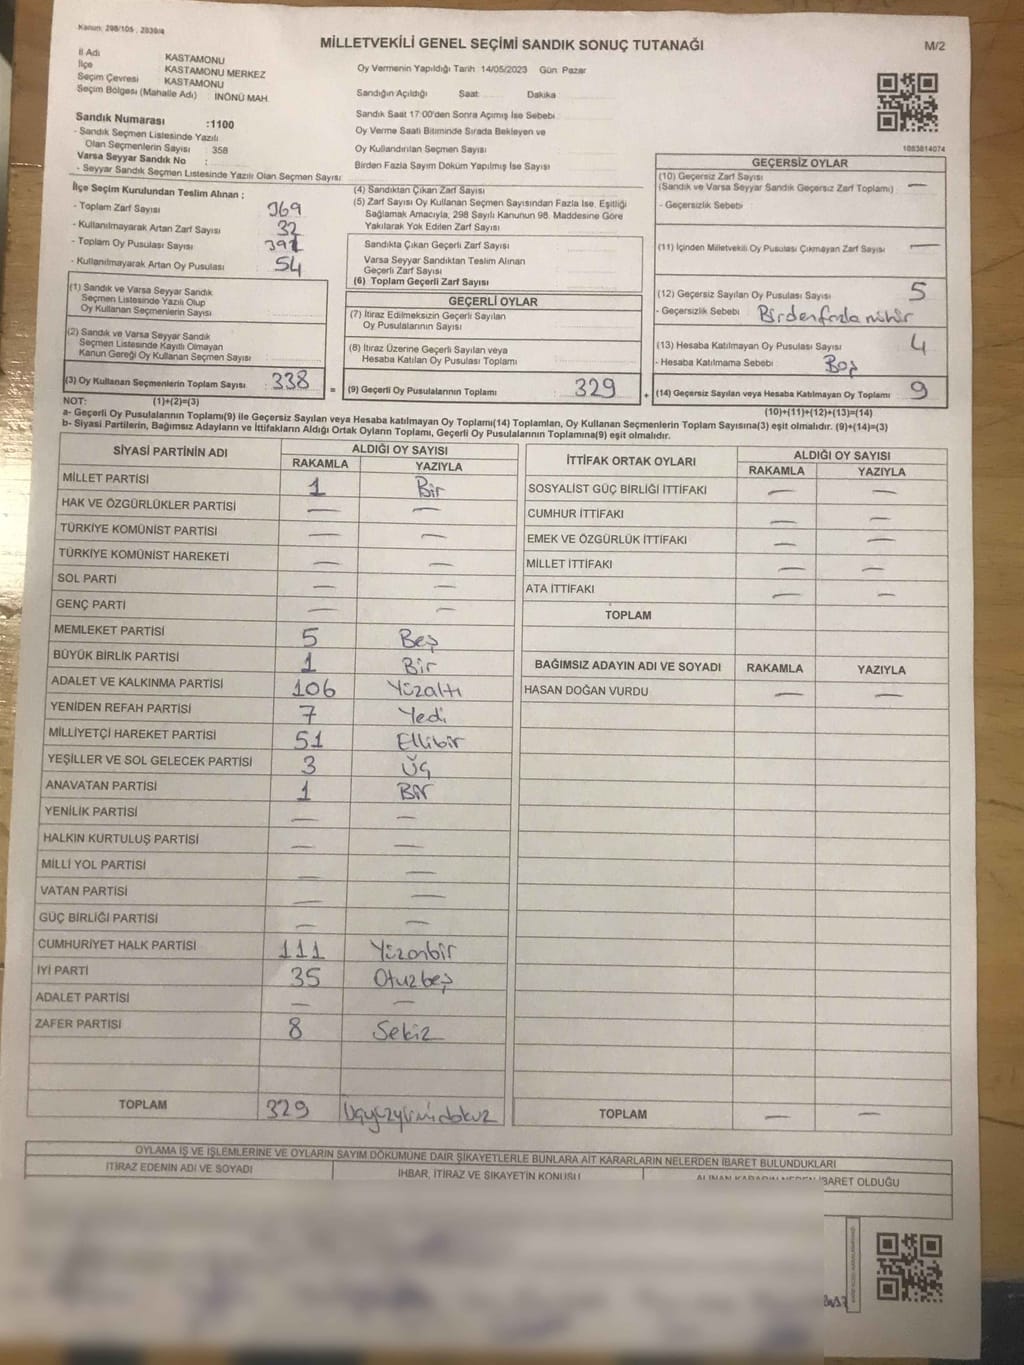 Kanun: 298/105 , 2839/4
MİLLETVEKİLİ GENEL SEÇİMİ SANDIK SONUÇ TUTANAĞI
M/2
İl Adı KASTAMONU
İlçe KASTAMONU MERKEZ
Seçim Çevresi KASTAMONU
Seçim Bölgesi (Mahalle Adı) : İNÖNÜ MAH.
Oy Vermenin Yapıldığı Tarih: 14/05/2023 Gün: Pazar
Sandığın Açıldığı Saat: Dakika
Sandık Saat 17:00'den Sonra Açımış İse Sebebi
Oy Verme Saati Bitiminde Sırada Bekleyen ve
Oy Kullandırılan Seçmen Sayısı
Birden Fazla Sayım Döküm Yapılmış İse Sayısı
Sandık Numarası :1100
- Sandık Seçmen Listesinde Yazılı
Olan Seçmenlerin Sayısı : 358
Varsa Seyyar Sandık No :
- Seyyar Sandık Seçmen Listesinde Yazılı Olan Seçmen Sayısı:
1083814074
İlçe Seçim Kurulundan Teslim Alınan :
- Toplam Zarf Sayısı 369
- Kullanılmayarak Artan Zarf Sayısı 32
- Toplam Oy Pusulası Sayısı
- Kullanılmayarak Artan Oy Pusulası 54
(1) Sandık ve Varsa Seyyar Sandık
Seçmen Listesinde Yazılı Olup
Oy Kullanan Seçmenlerin Sayısı :
(2) Sandık ve Varsa Seyyar Sandık
Seçmen Listesinde Kayıtlı Olmayan
Kanun Gereği Oy Kullanan Seçmen Sayısı :
(3) Oy Kullanan Seçmenlerin Toplam Sayısı : 338 =
(4) Sandıktan Çıkan Zarf Sayısı
(5) Zarf Sayısı Oy Kullanan Seçmen Sayısından Fazla İse, Eşitliği
Sağlamak Amacıyla, 298 Sayılı Kanunun 98. Maddesine Göre
Yakılarak Yok Edilen Zarf Sayısı
Sandıkta Çıkan Geçerli Zarf Sayısı
Varsa Seyyar Sandıktan Teslim Alınan
Geçerli Zarf Sayısı
(6) Toplam Geçerli Zarf Sayısı
GEÇERLİ OYLAR
(7) İtiraz Edilmeksizin Geçerli Sayılan
Oy Pusulalarının Sayısı
(8) İtiraz Üzerine Geçerli Sayılan veya
Hesaba Katılan Oy Pusulası Toplamı
(9) Geçerli Oy Pusulalarının Toplamı : 329 +
GEÇERSİZ OYLAR
(10) Geçersiz Zarf Sayısı —
(Sandık ve Varsa Seyyar Sandık Geçersiz Zarf Toplamı)
- Geçersizlik Sebebi
(11) İçinden Milletvekili Oy Pusulası Çıkmayan Zarf Sayısı —
(12) Geçersiz Sayılan Oy Pusulası Sayısı 5
- Geçersizlik Sebebi Birden fazla mühür
(13) Hesaba Katılmayan Oy Pusulası Sayısı 4
- Hesaba Katılmama Sebebi Boş
(14) Geçersiz Sayılan veya Hesaba Katılmayan Oy Toplamı 9
NOT: (1)+(2)=(3)
(10)+(11)+(12)+(13)=(14)
a- Geçerli Oy Pusulalarının Toplamı(9) ile Geçersiz Sayılan veya Hesaba katılmayan Oy Toplamı(14) Toplamları, Oy Kullanan Seçmenlerin Toplam Sayısına(3) eşit olmalıdır. (9)+(14)=(3)
b- Siyasi Partilerin, Bağımsız Adayların ve İttifakların Aldığı Ortak Oyların Toplamı, Geçerli Oy Pusulalarının Toplamına(9) eşit olmalıdır.
SİYASİ PARTİNİN ADI ALDIĞI OY SAYISI
RAKAMLA YAZIYLA
MİLLET PARTİSİ 1 Bir
HAK VE ÖZGÜRLÜKLER PARTİSİ — —
TÜRKİYE KOMÜNİST PARTİSİ — —
TÜRKİYE KOMÜNİST HAREKETİ — —
SOL PARTİ — —
GENÇ PARTİ — —
MEMLEKET PARTİSİ 5 Beş
BÜYÜK BİRLİK PARTİSİ 1 Bir
ADALET VE KALKINMA PARTİSİ 106 Yüzaltı
YENİDEN REFAH PARTİSİ 7 Yedi
MİLLİYETÇİ HAREKET PARTİSİ 51 Ellibir
YEŞİLLER VE SOL GELECEK PARTİSİ 3 Üç
ANAVATAN PARTİSİ 1 Bir
YENİLİK PARTİSİ — —
HALKIN KURTULUŞ PARTİSİ — —
MİLLİ YOL PARTİSİ — —
VATAN PARTİSİ — —
GÜÇ BİRLİĞİ PARTİSİ — —
CUMHURİYET HALK PARTİSİ 111 Yüzonbir
İYİ PARTİ 35 Otuzbeş
ADALET PARTİSİ — —
ZAFER PARTİSİ 8 Sekiz
TOPLAM 329 Üçyüzyirmidokuz
İTTİFAK ORTAK OYLARI ALDIĞI OY SAYISI
RAKAMLA YAZIYLA
SOSYALİST GÜÇ BİRLİĞİ İTTİFAKI — —
CUMHUR İTTİFAKI — —
EMEK VE ÖZGÜRLÜK İTTİFAKI — —
MİLLET İTTİFAKI — —
ATA İTTİFAKI — —
TOPLAM
BAĞIMSIZ ADAYIN ADI VE SOYADI RAKAMLA YAZIYLA
HASAN DOĞAN VURDU — —
TOPLAM — —
OYLAMA İŞ VE İŞLEMLERİNE VE OYLARIN SAYIM DÖKÜMÜNE DAİR ŞİKAYETLERLE BUNLARA AİT KARARLARIN NELERDEN İBARET BULUNDUKLARI
İTİRAZ EDENİN ADI VE SOYADI İHBAR, İTİRAZ VE ŞİKAYETİN KONUSU ALINAN KARARIN NEDEN İBARET OLDUĞU